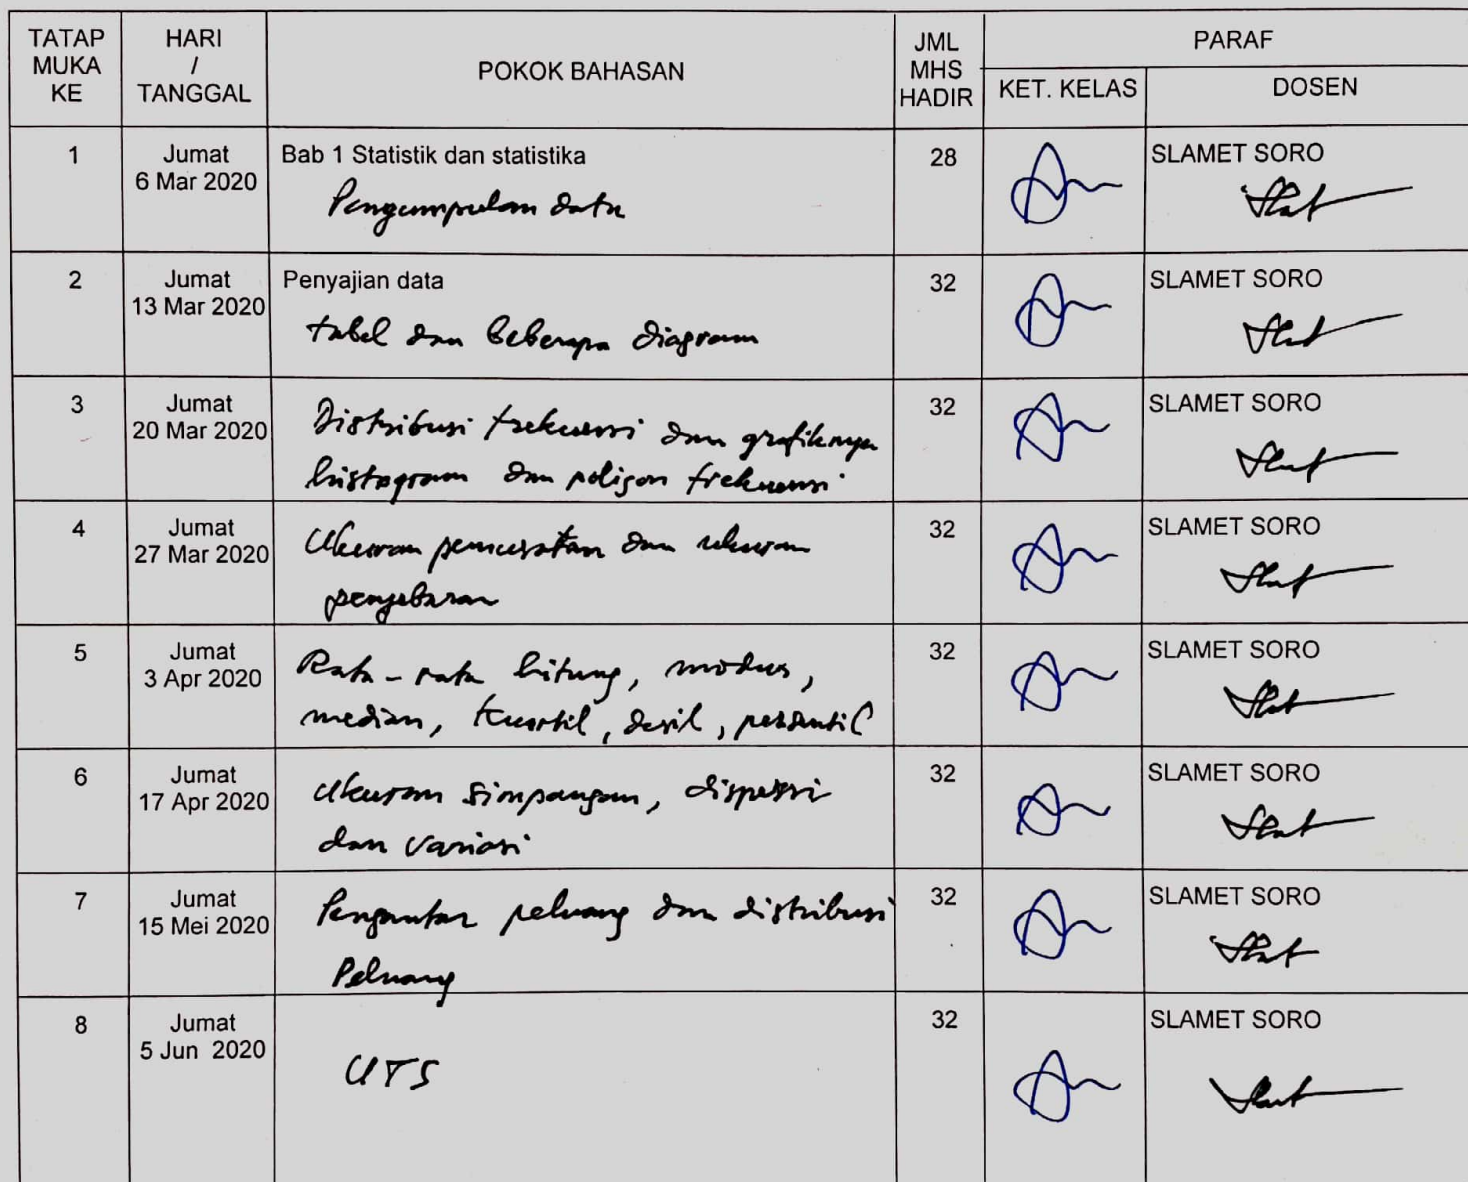 TATAP MUKA KE
HARI / TANGGAL
POKOK BAHASAN
JML MHS HADIR
PARAF
KET. KELAS
DOSEN
1
Jumat
6 Mar 2020
Bab 1 Statistik dan statistika
Pengumpulan data
28
SLAMET SORO
2
Jumat
13 Mar 2020
Penyajian data
tabel dan beberapa diagram
32
SLAMET SORO
3
Jumat
20 Mar 2020
Distribusi frekuensi dan grafiknya
histogram dan poligon frekuensi
32
SLAMET SORO
4
Jumat
27 Mar 2020
Ukuran pemusatan dan ukuran
penyebaran
32
SLAMET SORO
5
Jumat
3 Apr 2020
Rata-rata hitung, modus,
median, kuartil, desil, persentil
32
SLAMET SORO
6
Jumat
17 Apr 2020
Ukuran simpangan, dispersi
dan variasi
32
SLAMET SORO
7
Jumat
15 Mei 2020
Pengantar peluang dan distribusi
Peluang
32
SLAMET SORO
8
Jumat
5 Jun 2020
UTS
32
SLAMET SORO